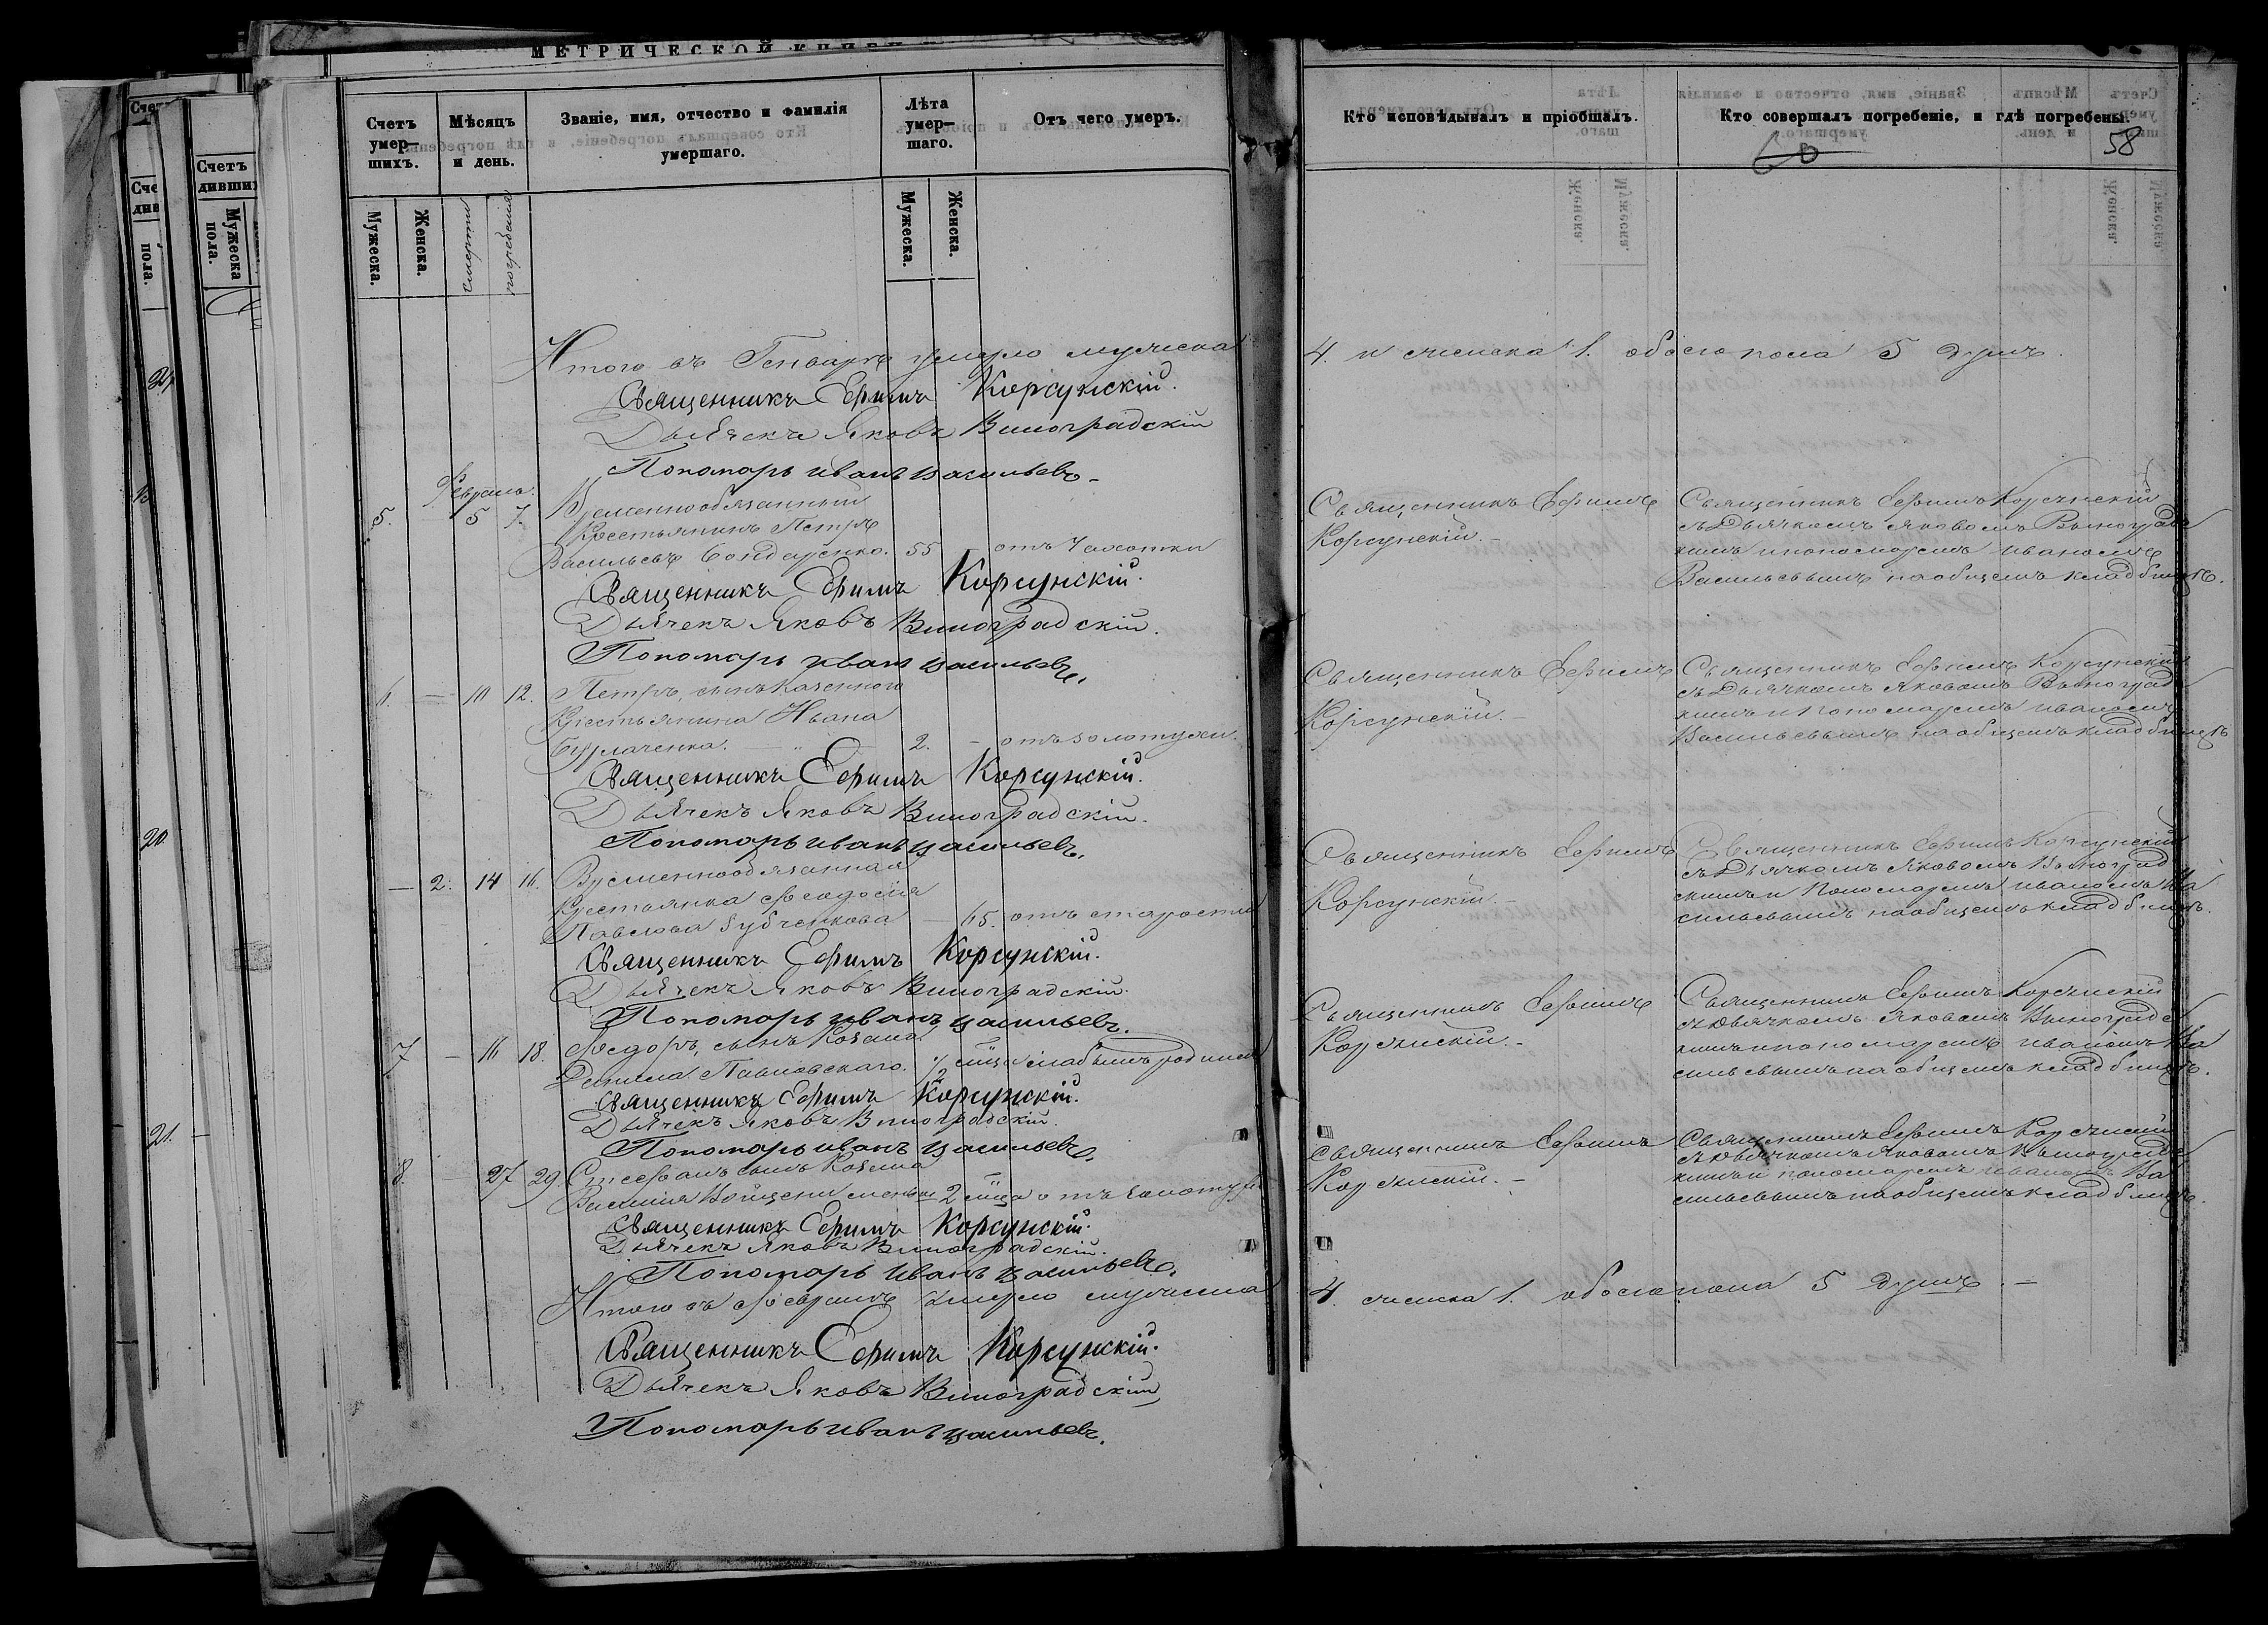 МЕТРИЧЕСКОЙ КНИГИ
Счетъ умер-шихъ.
Мѣсяцъ и день.
Званіе, имя, отчество и фамилія умершаго.
Лѣта умер-шаго.
Отъ чего умеръ.
Мужеска.
Женска.
смерти
погребенія
Мужеска.
Женска.
Кто исповѣдывалъ и пріобщалъ.
Кто совершалъ погребеніе, и гдѣ погребены.
60
58
Итого въ Генварѣ умерло мужеска 4. и женска 1. обоего пола 5 душъ.
Священникъ Ефимъ Корсунскій.
Дьячекъ Яковъ Виноградскій
Пономарь иванъ васильевъ.
Февраль.
5. 5 7. Временнообязанный
Крестьянинъ Петръ
Васильевъ Бондаренко. 55 - отъ чахотки
Священникъ Ефимъ
Корсунскій.-
Священникъ Ефимъ Корсунскій
съ Дьячкомъ Яковомъ Виноградс
кимъ и пономаремъ иваномъ
Васильевымъ на общемъ кладбищѣ.
Священникъ Ефимъ Корсунскій.
Дьячекъ Яковъ Виноградскій.
Пономарь иванъ васильевъ.
6. — 10 12. Петръ, сынъ казеннаго
Крестьянина Ивана
Бурлаченка. 2. - отъ золотухи.
Священникъ Ефимъ
Корсунскій.-
Священникъ Ефимъ Корсунскій
съ Дьячкомъ Яковомъ Виноград
кимъ и пономаремъ иваномъ
Васильевымъ на общемъ кладбищѣ
Священникъ Ефимъ Корсунскій.
Дьячекъ Яковъ Виноградскій.
Пономарь иванъ васильевъ.
— 2. 14 16. Временнообязанная
Крестьянка Феодосія
Павлова Зубченкова — 65. отъ старости
Священникъ Ефимъ
Корсунскій.-
Священникъ Ефимъ Корсунскій
съ Дьячкомъ Яковомъ Виноград
скимъ и Пономаремъ иваномъ Ва
сильевымъ на общемъ кладбищѣ.
Священникъ Ефимъ Корсунскій.
Дьячекъ Яковъ Виноградскій.
Пономарь иванъ васильевъ.
7 — 16 18. Федоръ, сынъ Козака
Данила Павловскаго. ½ мѣца слабымъ родился
Священникъ Ефимъ
Корсунскій.-
Священникъ Ефимъ Корсунскій
съ Дьячкомъ Яковомъ Виноградс
кимъ и пономаремъ иваномъ Ва
сильевымъ на общемъ кладбищѣ.
Священникъ Ефимъ Корсунскій.
Дьячекъ Яковъ Виноградскій.
Пономарь иванъ васильевъ.
8. — 27 29 Стефанъ сынъ Козака
Василія 2 мѣца отъ золотухи
Священникъ Ефимъ
Корсунскій.-
Священникъ Ефимъ Корсунскій
съ Дьячкомъ Яковомъ Виноградс
кимъ и пономаремъ иваномъ Ва
сильевымъ на общемъ кладбищѣ.
Священникъ Ефимъ Корсунскій.
Дьячекъ Яковъ Виноградскій.
Пономарь иванъ васильевъ.
Итого въ Февралѣ умерло мужеска 4. женска 1. обоего пола 5 душъ.-
Священникъ Ефимъ Корсунскій.
Дьячекъ Яковъ Виноградскій
Пономарь иванъ васильевъ.